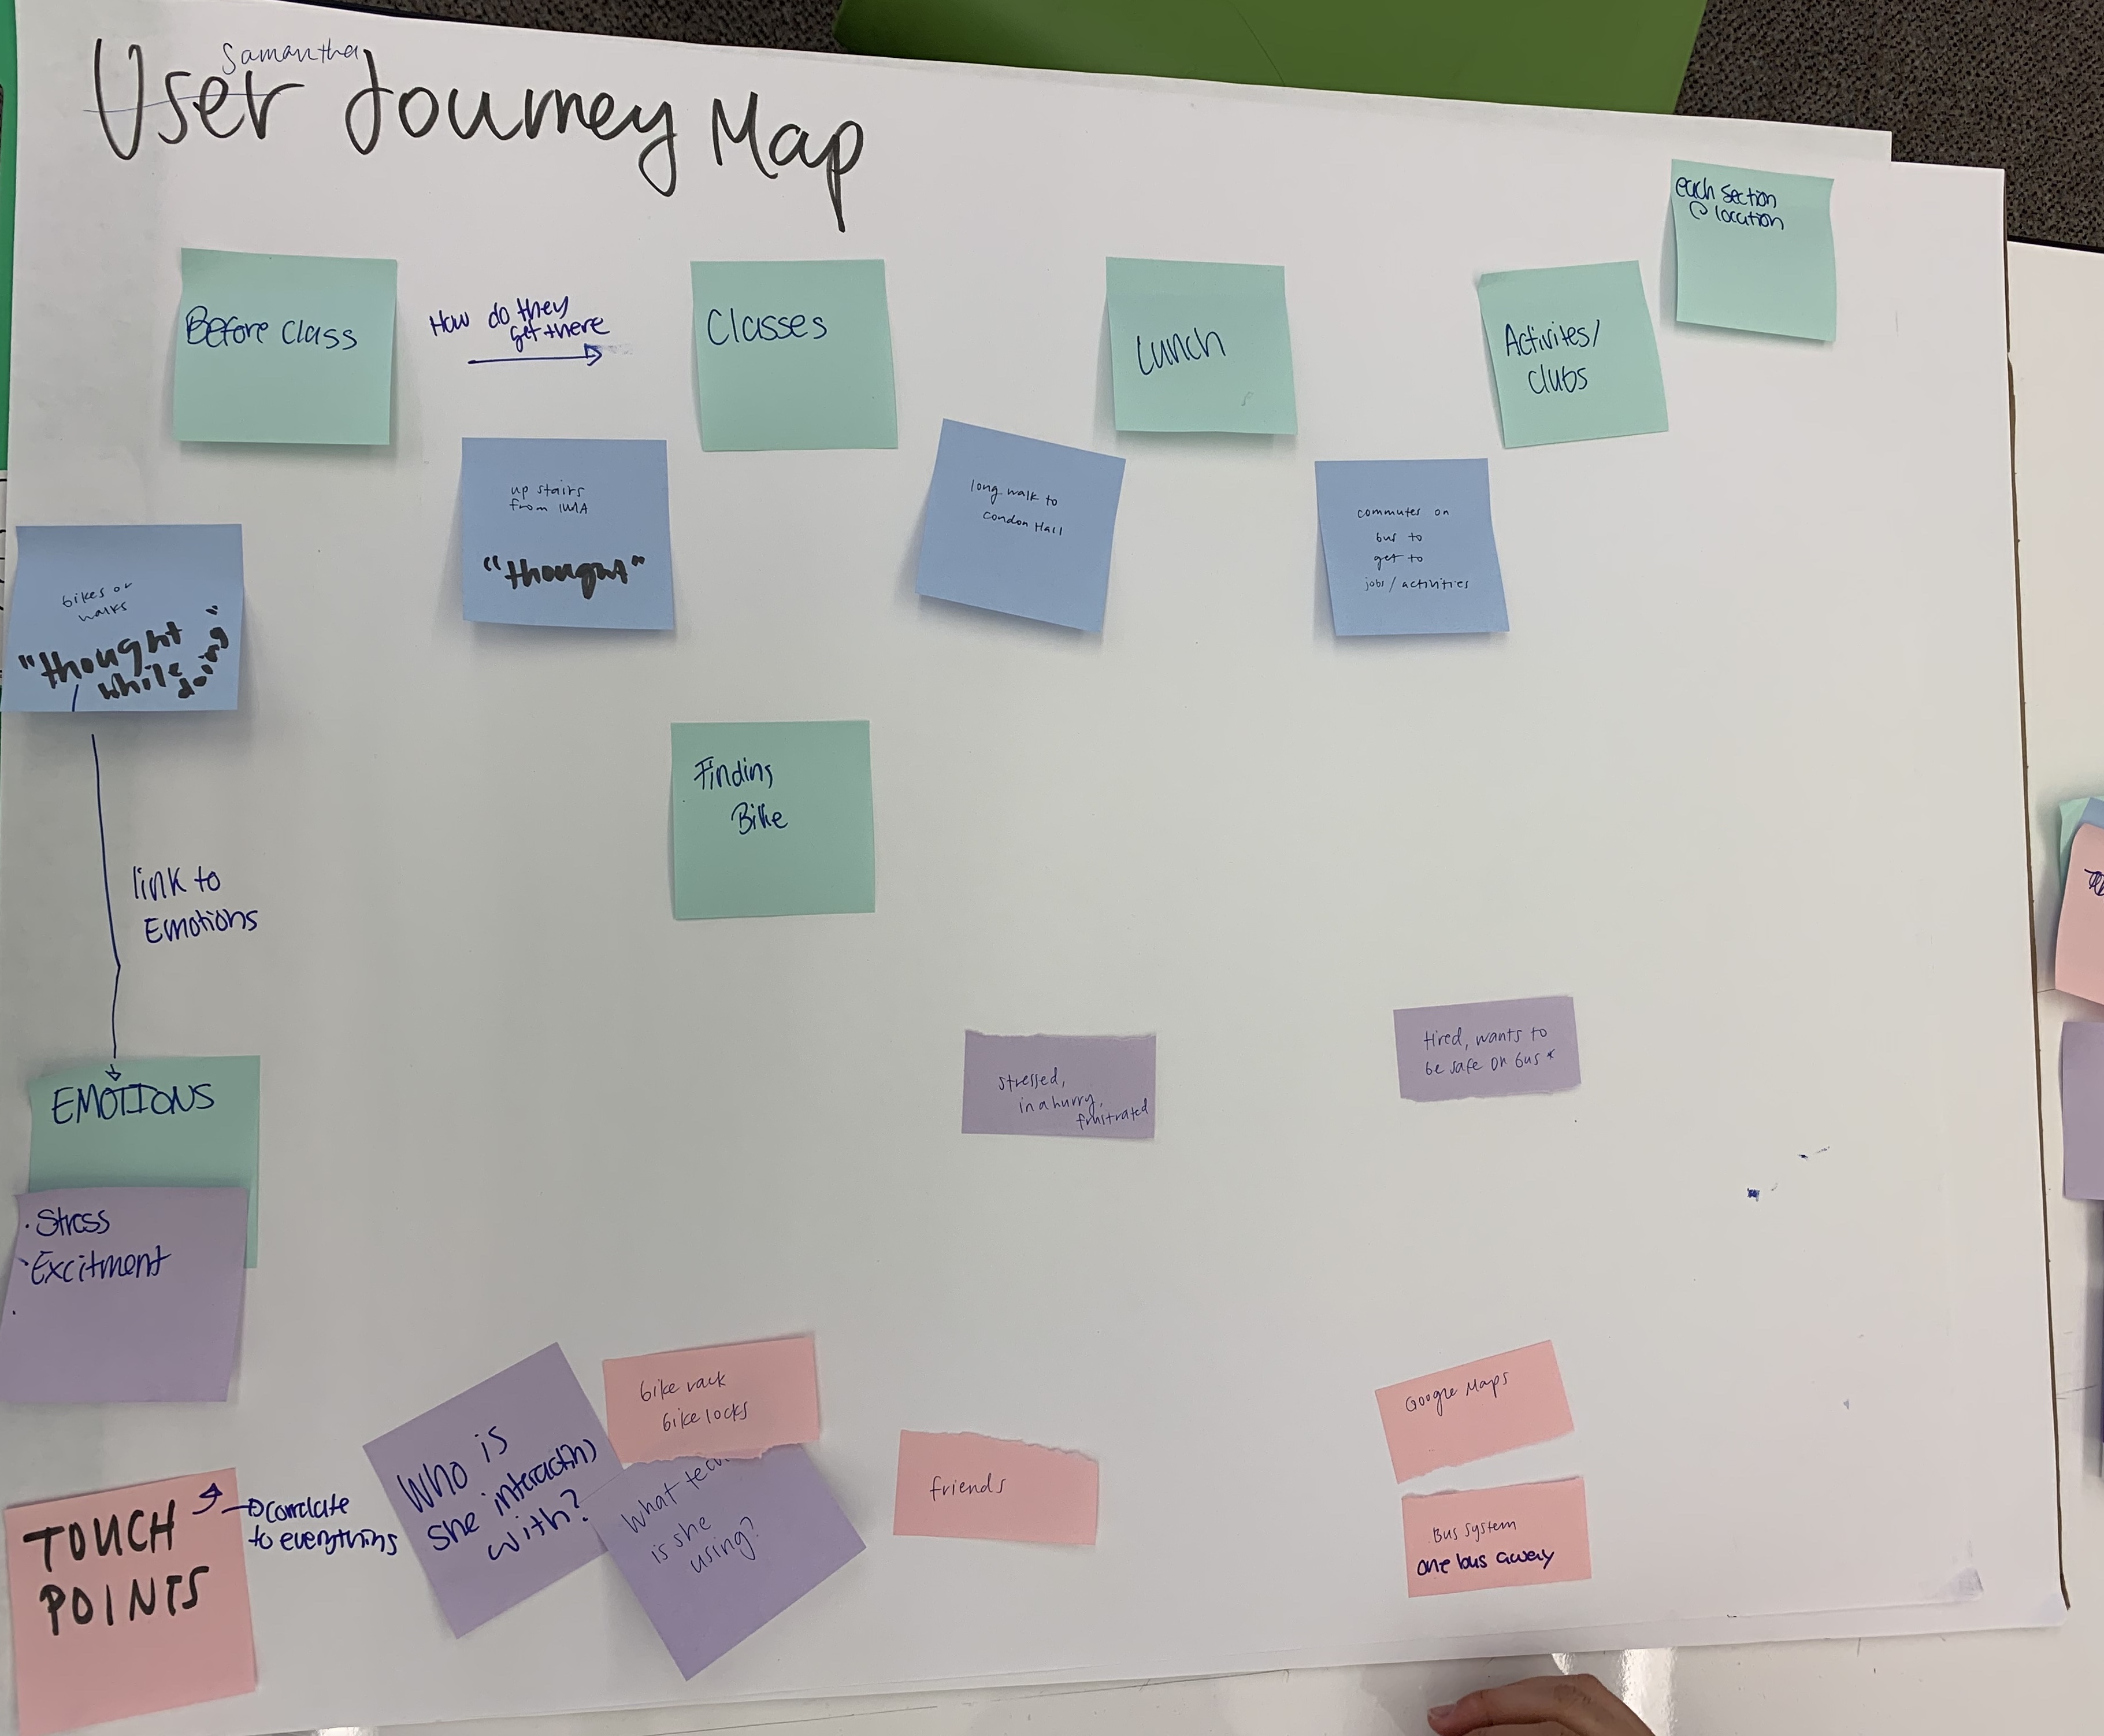 Samantha
User Journey Map
each section
@ location
Before class
How do they
get there
Classes
Lunch
Activites/
clubs
up stairs
from IMA
"thought"
long walk to
Condon Hall
commutes on
bus to
get to
jobs/activities
bikes or
walks
"thought
while
doing"
Finding
Bike
link to
Emotions
EMOTIONS
· Stress
· Excitment
stressed,
in a hurry,
frustrated
tired, wants to
be safe on bus *
TOUCH
POINTS
correlate
to everything
Who is
she interacting
with?
bike rack
bike locks
What
is she
using?
friends
Google Maps
Bus system
one bus away